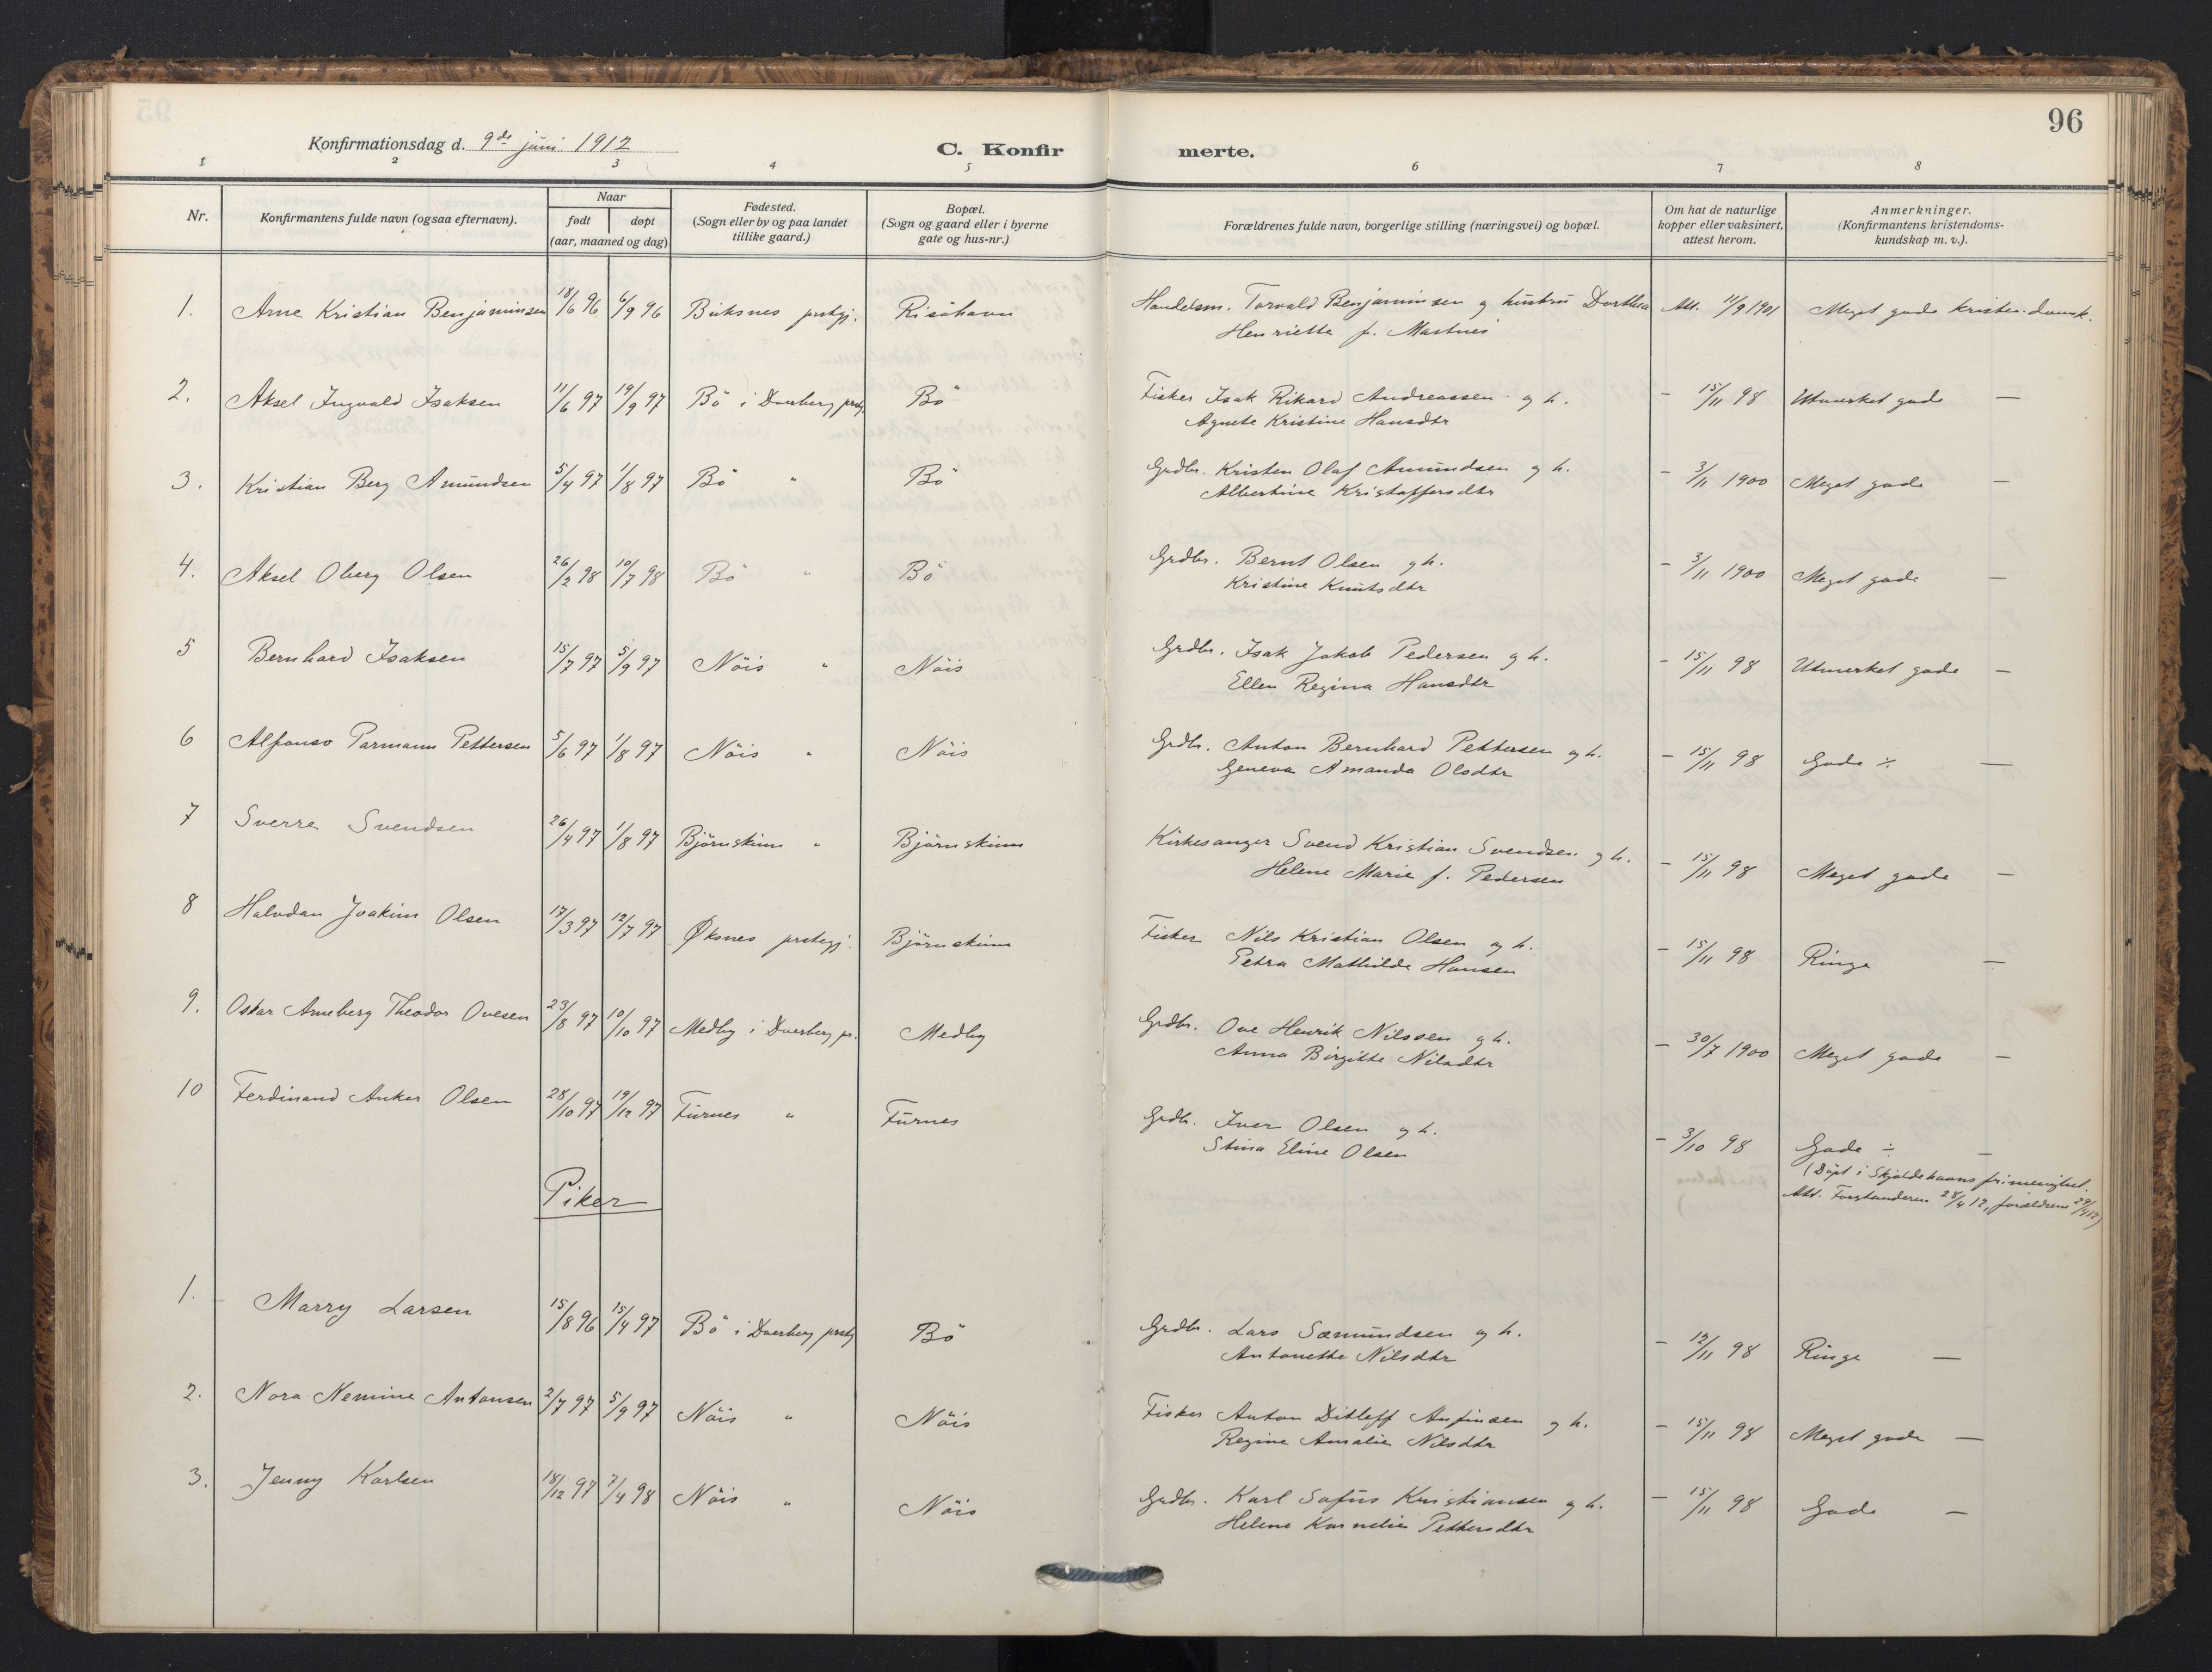 96
Konfirmationsdag d. 9de juni 1912
C. Konfirmerte.
1 2 3 4 5 6 7 8
Nr.
Konfirmantens fulde navn (ogsaa efternavn).
Naar
født døpt
(aar, maaned og dag)
Fødested.
(Sogn eller by og paa landet
tillike gaard.)
Bopæl.
(Sogn og gaard eller i byerne
gate og hus-nr.)
Forældrenes fulde navn, borgerlige stilling (næringsvei) og bopæl.
Om hat de naturlige
kopper eller vaksinert,
attest herom.
Anmerkninger.
(Konfirmantens kristendoms-
kundskap m. v.).
1. Arne Kristian Benjaminsen 18/6 96 6/9 96 Buksnes prstgj. Risöhavn Handelsm. Torvald Benjaminsen og hustru Dorthea Att. 11/9 1901 Meget gode kristen.domsk.
Henriette f. Mastnes
2. Aksel Ingvald Isaksen 11/6 97 19/9 97 Bö i Dverberg prstg. Bö Fisker Isak Rikard Andreassen og h. - 15/11 98 Utmerket gode —
Agnete Kristine Hansdtr
3. Kristian Berg Amundsen 5/4 97 1/8 97 Bö " Bö Grdbr. Kristen Olaf Amundsen og h. - 3/11 1900 Meget gode —
Albertine Kristoffersdtr
4. Aksel Oberg Olsen 26/2 98 10/7 98 Bö " Bö Grdbr. Bernt Olsen og h. - 3/11 1900 Meget gode —
Kristine Knutsdtr
5 Bernhard Isaksen 15/7 97 5/9 97 Nöis " Nöis Grdbr. Isak Jakob Pedersen og h. - 15/11 98 Utmerket gode —
Ellen Regina Hansdtr
6 Alfonso Parmann Pettersen 5/6 97 1/8 97 Nöis " Nöis Grdbr. Anton Bernhard Pettersen og h. - 15/11 98 Gode ÷ —
Geneva Amanda Olsdtr
7 Sverre Svendsen 26/4 97 1/8 97 Björnskinn " Björnskinn Kirkesanger Svend Kristian Svendsen og h. - 15/11 98 Meget gode —
Helene Marie f. Pedersen
8 Halvdan Joakim Olsen 17/3 97 12/7 97 Øksnes prstegj. Björnskinn Fisker Nils Kristian Olsen og h. - 15/11 98 Ringe —
Petra Mathilde Hansen
9. Oskar Arneberg Theodor Ovesen 23/8 97 10/10 97 Medby i Dverberg pr. Medby Grdbr. Ove Henrik Nilssen og h. - 30/7 1900 Meget gode —
Anna Birgitte Nilsdtr
10 Ferdinand Anker Olsen 28/10 97 19/12 97 Furnes " Furnes Grdbr. Iver Olsen og h. - 3/10 98 Gode ÷ —
Stina Eline Olsen
(Döpt i Skjoldehavns frimenighet.
Att. Forstanderen 28/4 12, forældrene 29/4 12)
Piker
1. Marry Larsen 15/8 96 15/4 97 Bö i Dverberg prstg Bö Grdbr. Lars Sæmundsen og h. - 12/11 98 Ringe —
Antonette Nilsdtr
2. Nora Nemine Antonsen 2/7 97 5/9 97 Nöis " Nöis Fisker Anton Ditleff Anfinsen og h. - 15/11 98 Meget gode —
Regine Amalie Nilsdtr
3. Jenny Karlsen 18/12 97 7/4 98 Nöis " Nöis Grdbr. Karl Sofus Kristiansen og h. - 15/11 98 Gode —
Helene Kornelie Pettersdtr